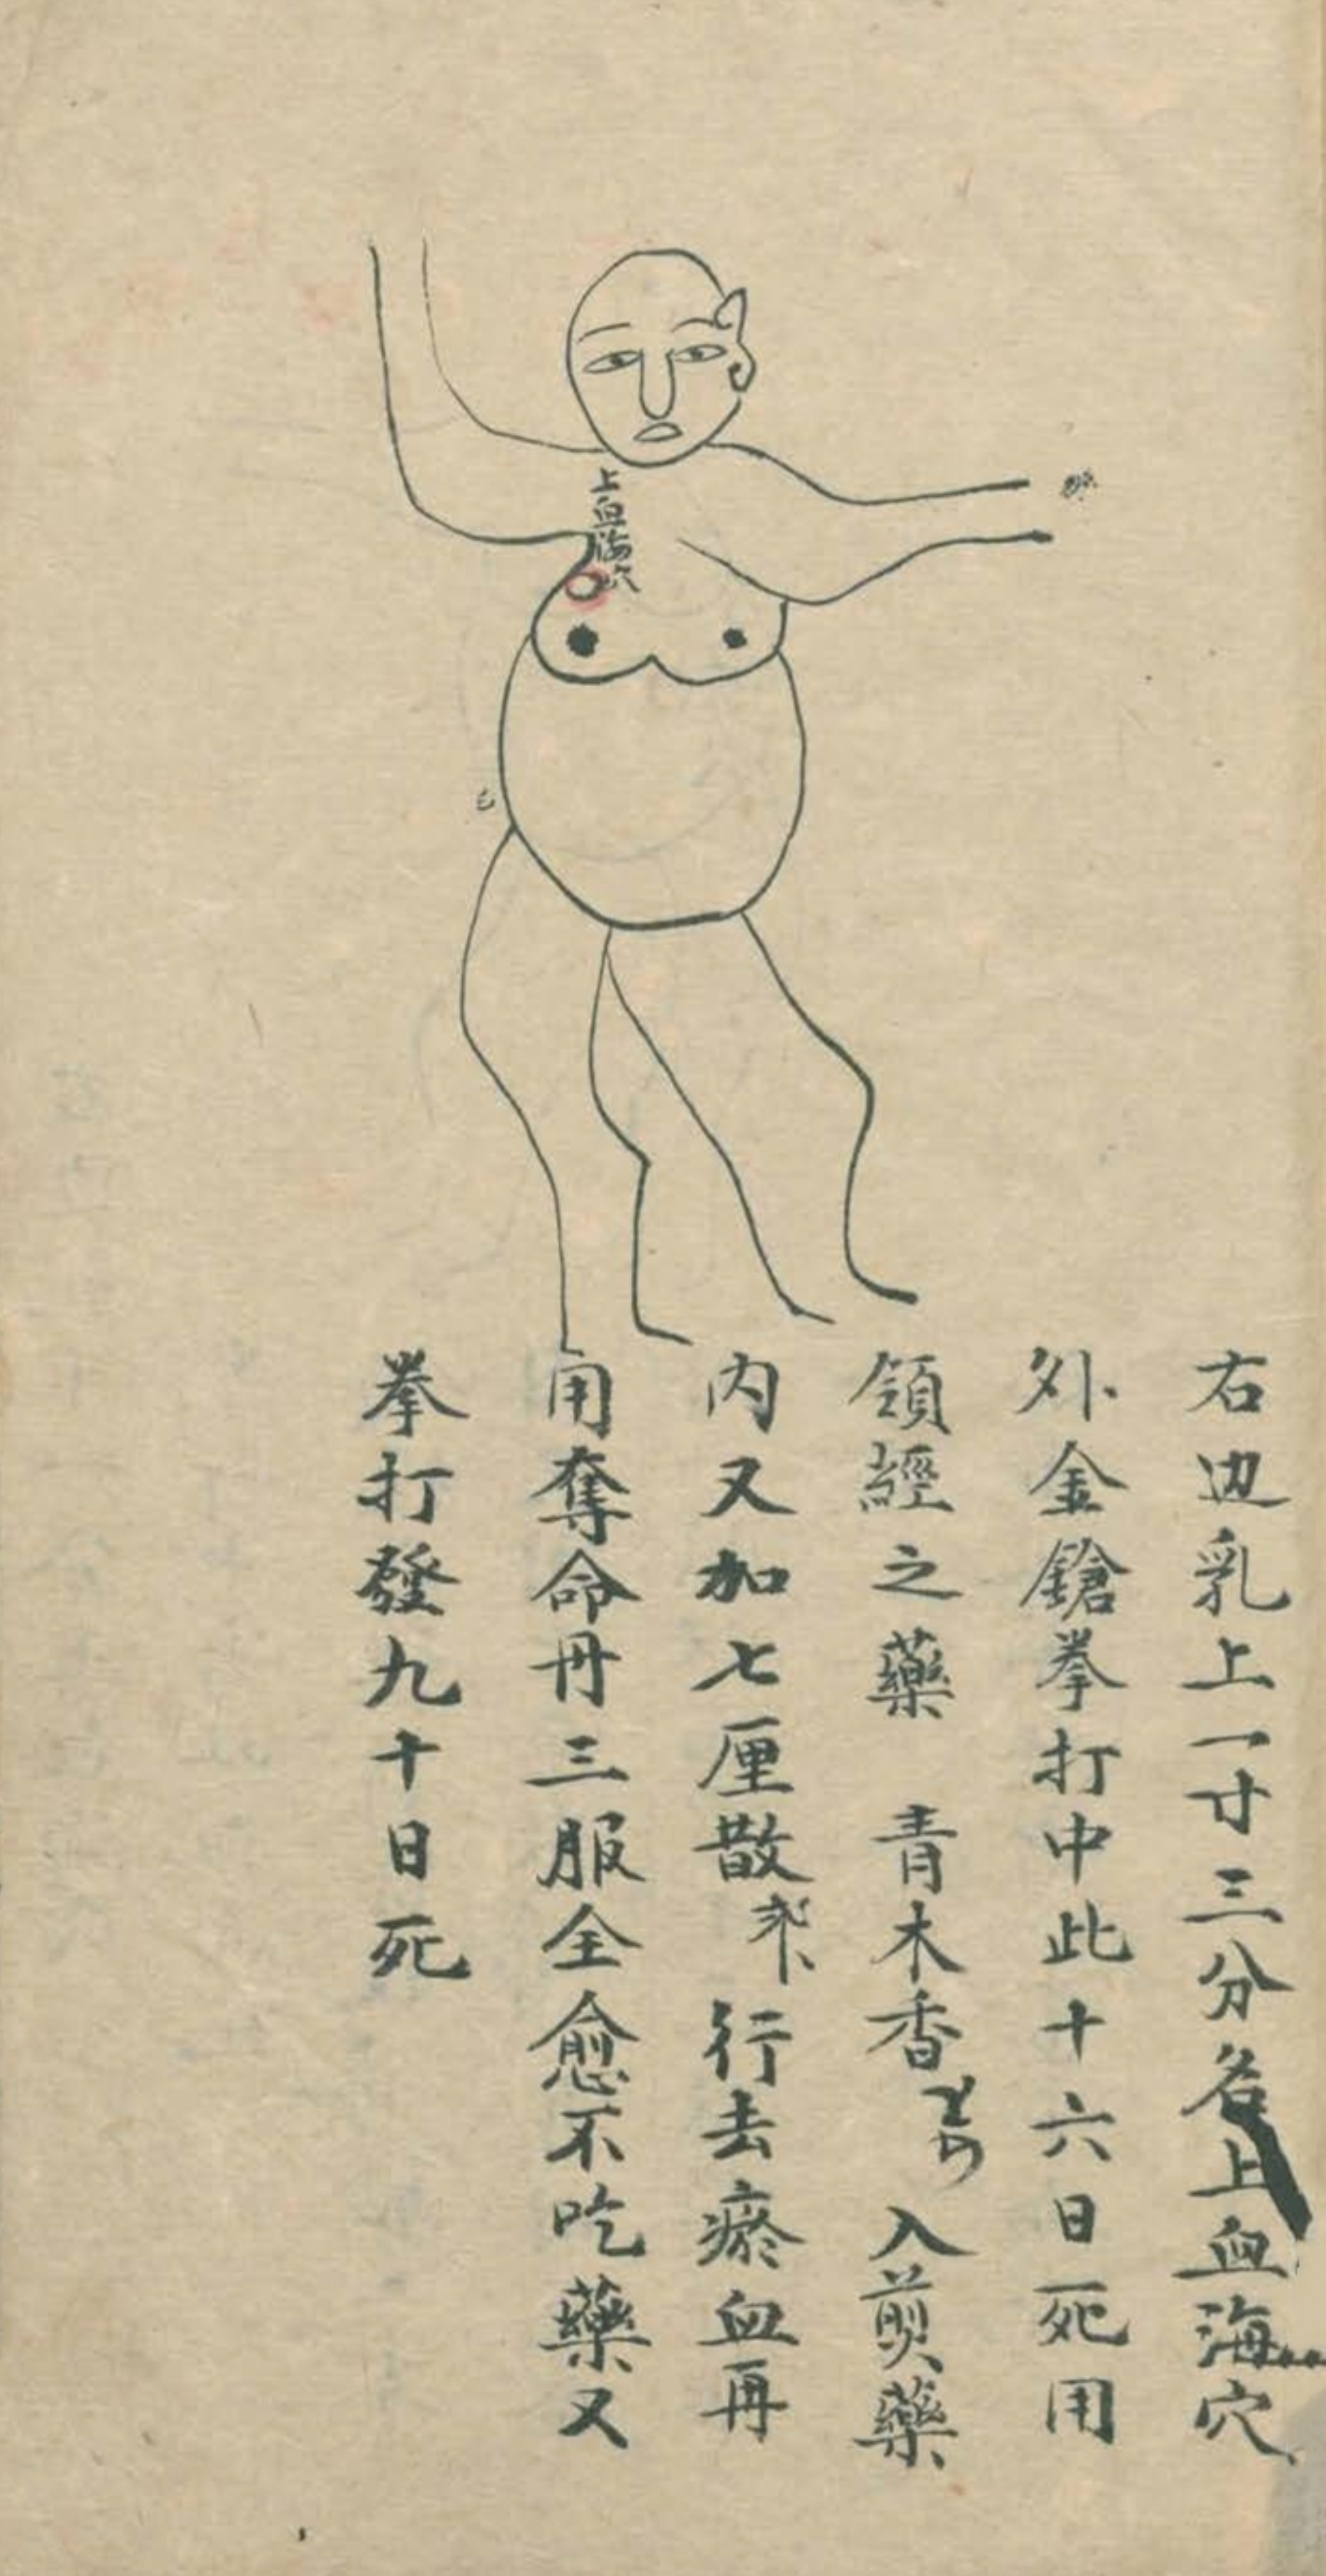 上血海穴
右边乳上一寸三分名上血海穴
外金鎗拳打中此十六日死用
領經之藥 青木香 入煎藥
内又加七厘散 行去瘀血再
用奪命丹三服全愈不吃藥又
拳打發九十日死